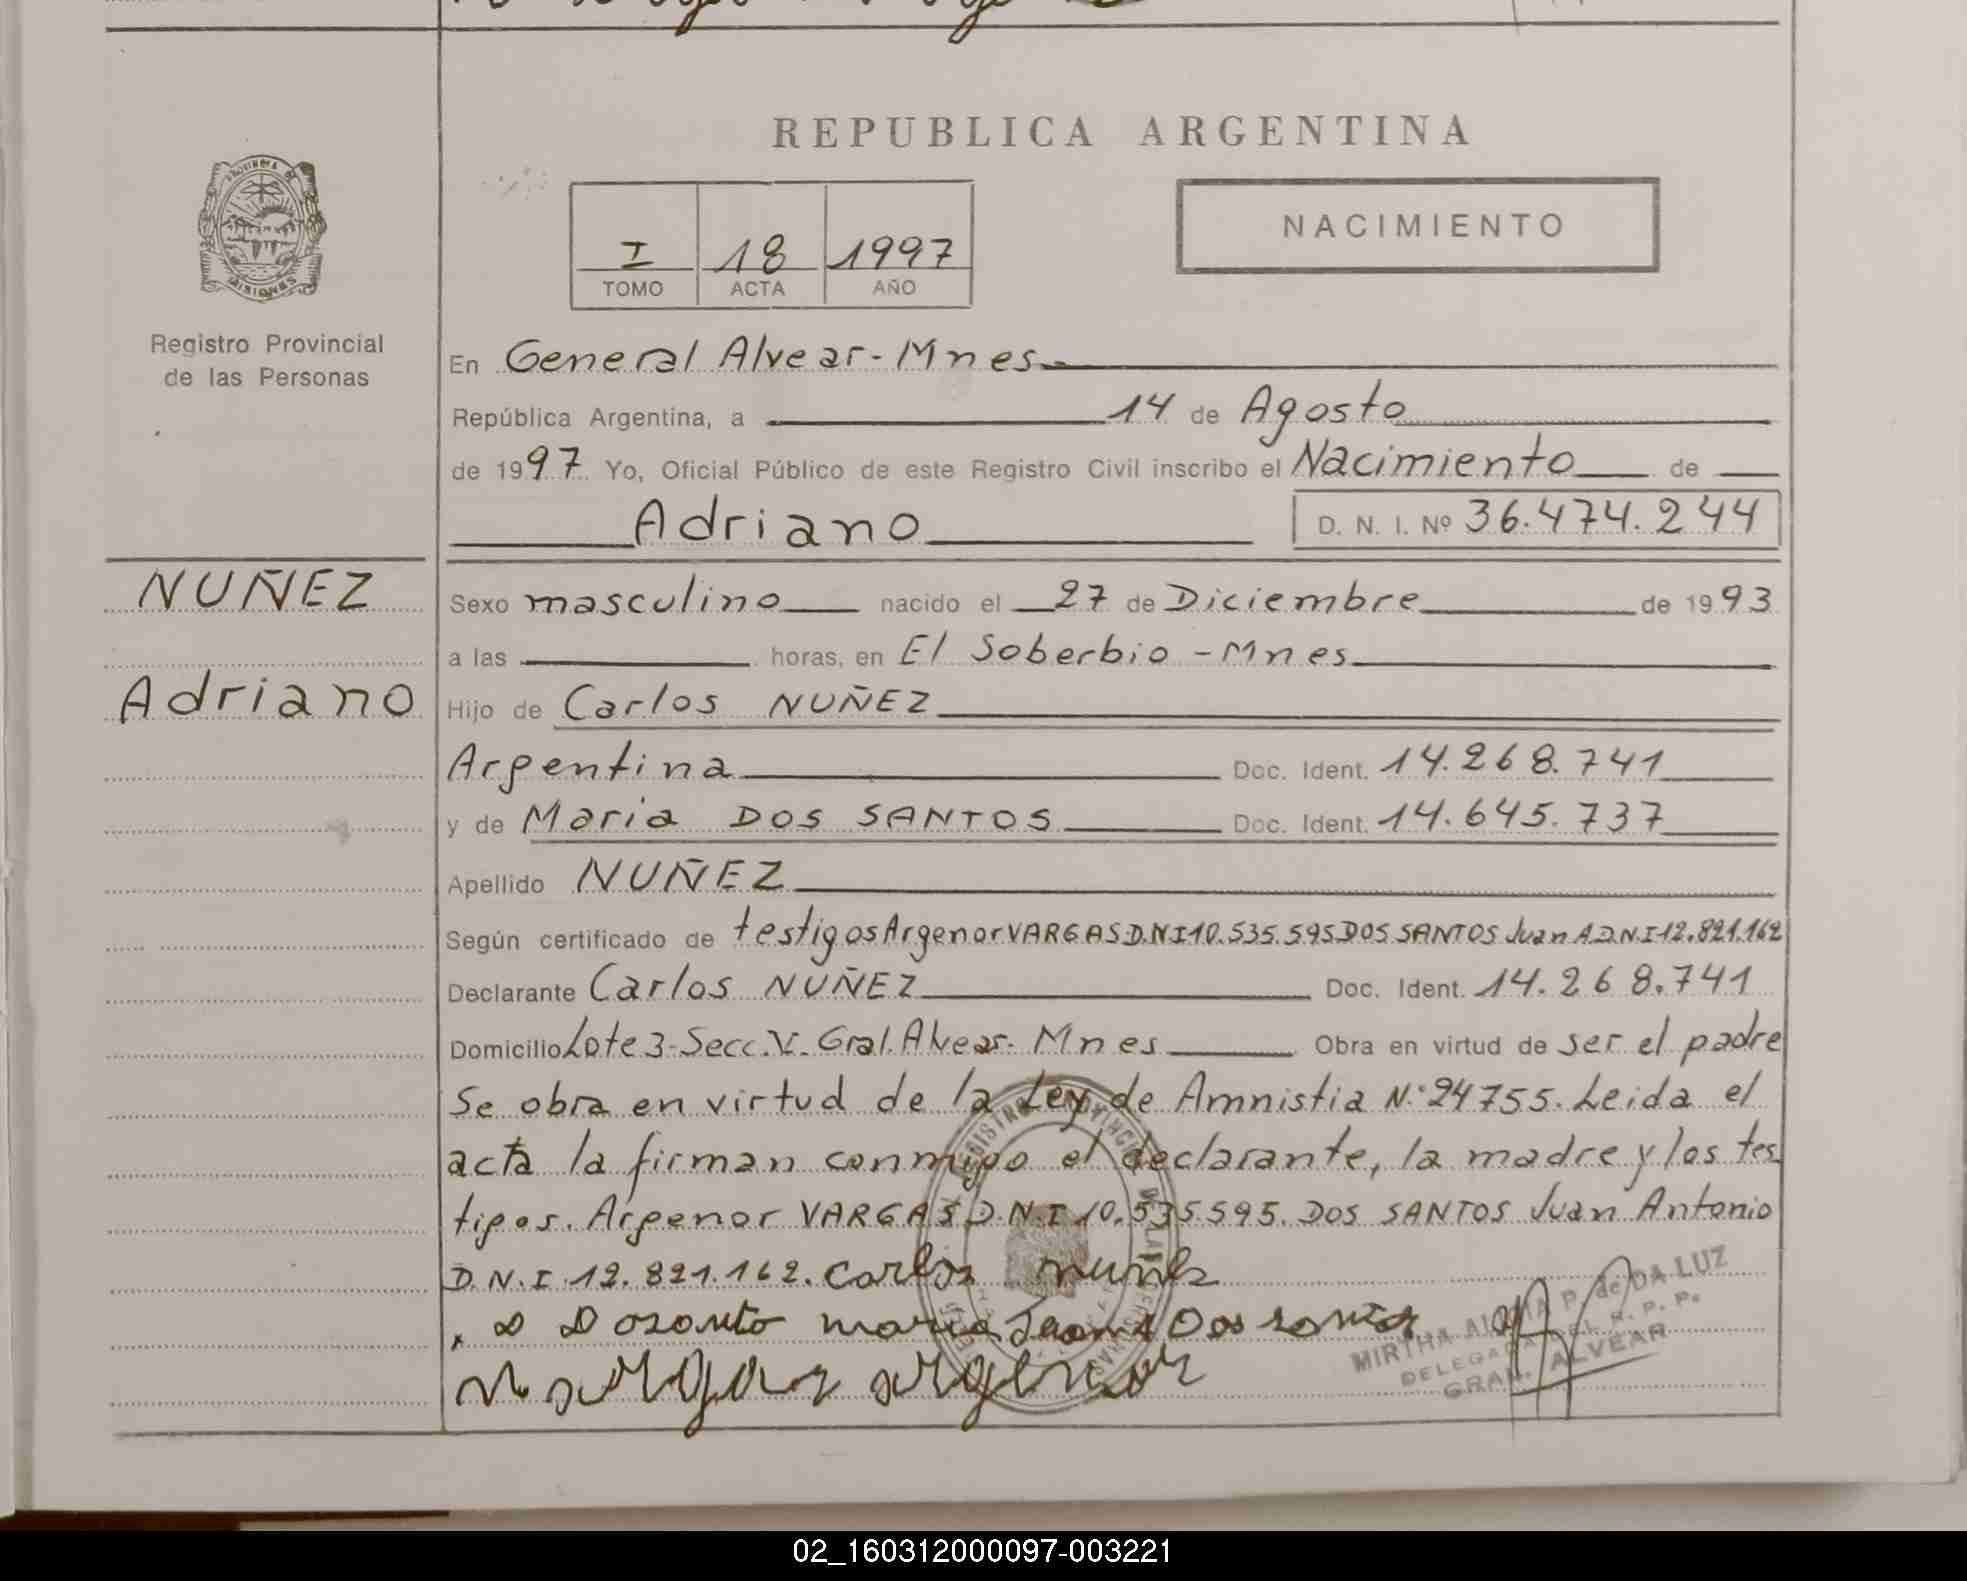 REPUBLICA ARGENTINA
PROVINCIA DE
MISIONES
I 18 1997
TOMO ACTA AÑO
NACIMIENTO
Registro Provincial
de las Personas
En General Alvear-Mnes
República Argentina, a 14 de Agosto
de 1997 Yo, Oficial Público de este Registro Civil inscribo el Nacimiento de
Adriano D. N. I. Nº 36.474.244
NUÑEZ
Adriano
Sexo masculino nacido el 27 de Diciembre de 1993
a las horas, en El Soberbio -Mnes
Hijo de Carlos NUÑEZ
Argentina Doc. Ident. 14.268.741
y de Maria DOS SANTOS Doc. Ident. 14.645.737
Apellido NUÑEZ
Según certificado de testigos Argenor VARGAS D.N.I 10.535.595 DOS SANTOS Juan A D.N.I 12.821.162
Declarante Carlos NUÑEZ Doc. Ident. 14.268.741
Domicilio Lote 3-Secc.V. Gral. Alvear- Mnes Obra en virtud de ser el padre
Se obra en virtud de la Ley de Amnistia N° 24755. Leida el
acta la firman conmigo el declarante, la madre y los tes
tigos. Argenor VARGAS D.N.I 10.535.595. DOS SANTOS Juan Antonio
D.N.I 12.821.162. Carlos nuñez
maria Dos santos
argenor
MIRTHA P. de DA LUZ
DELEGADA DEL R. P. P.
GRAL. ALVEAR
02_160312000097-003221